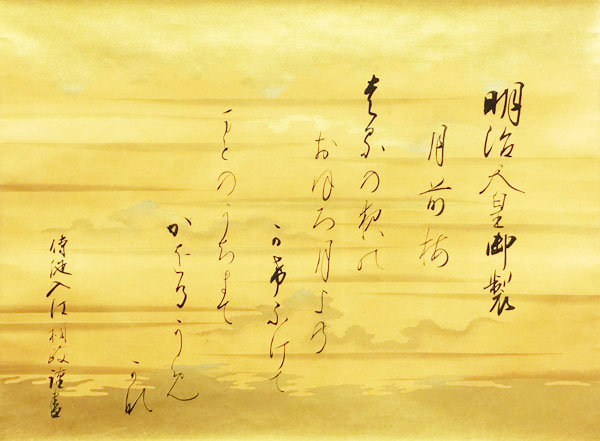 明治天皇御製
月前梅
はるの夜の
おほろ月よの
かけふけて
まとのうちまて
かをるうめ
かな
侍従入江相政謹書